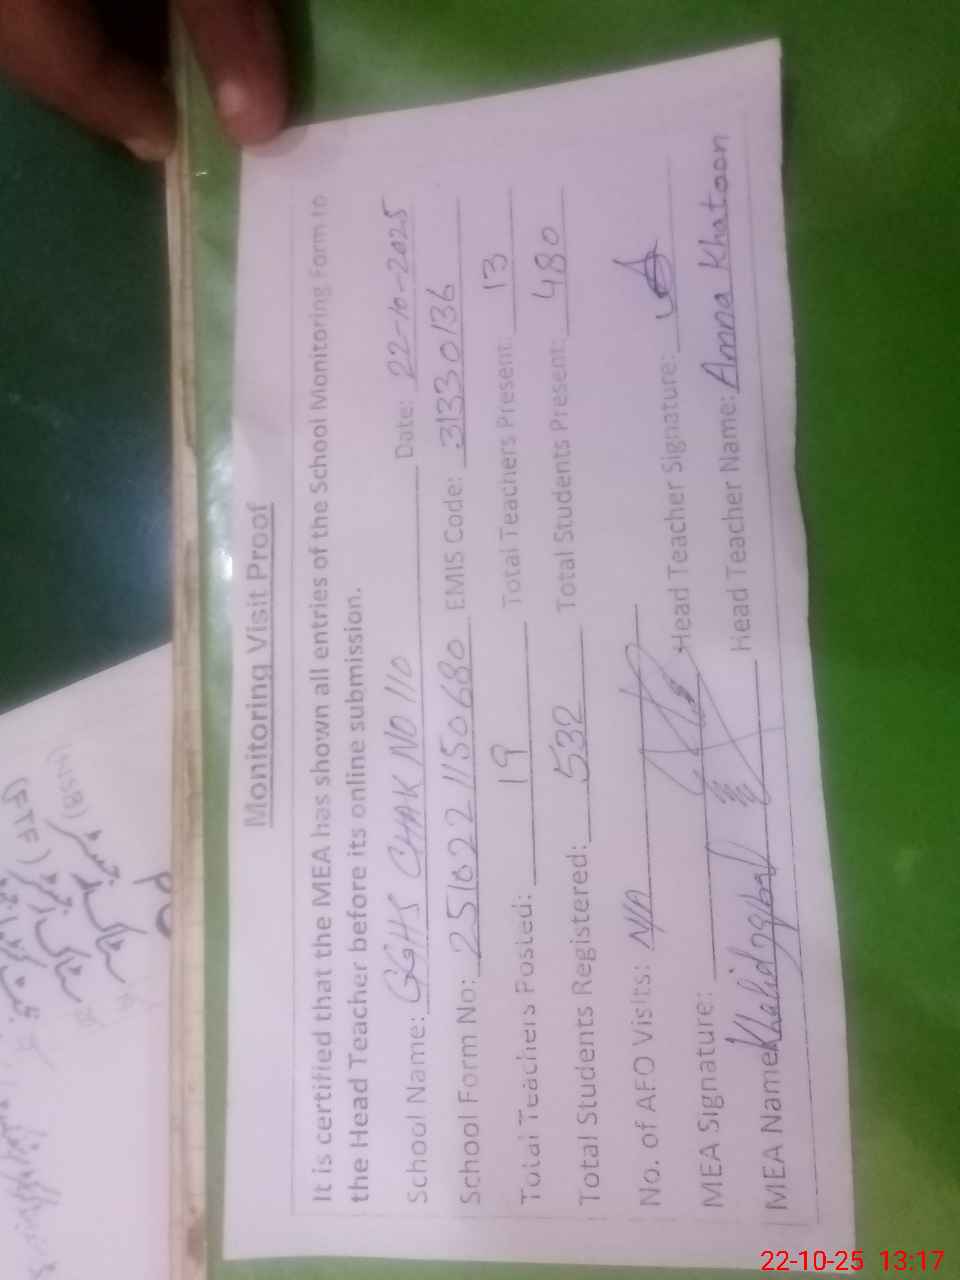 Monitoring Visit Proof
It is certified that the MEA has shown all entries of the School Monitoring Form to
the Head Teacher before its online submission.
School Name: GGHS CHAK NO 110 Date: 22-10-2025
School Form No: 2510221150680 EMIS Code: 31330136
Total Teachers Posted: 19 Total Teachers Present: 13
Total Students Registered: 532 Total Students Present: 480
No. of AEO Visits: N/A
MEA Signature: Head Teacher Signature:
MEA Name: Khalid Iqbal Head Teacher Name: Amna Khatoon
22-10-25 13:17